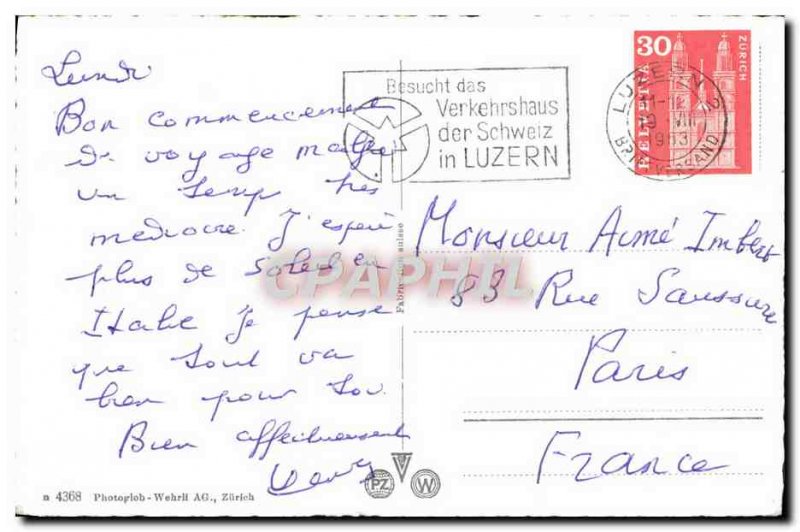 Lundi
Bon commencement
de voyage malgré
un temps très
médiocre. J'espère
plus de soleil en
Italie je pense
que tout va
bien pour toi.
Bien affectueusement
Besucht das
Verkehrshaus
der Schweiz
in LUZERN
30
HELVETIA
ZÜRICH
LUZERN
BRIEFVERSAND
Monsieur Aimé Imbert
83 Rue Saussure
Paris
France
Fabrication suisse
CPAPHIL
n 4368 Photoglob-Wehrli AG., Zürich
PZ W